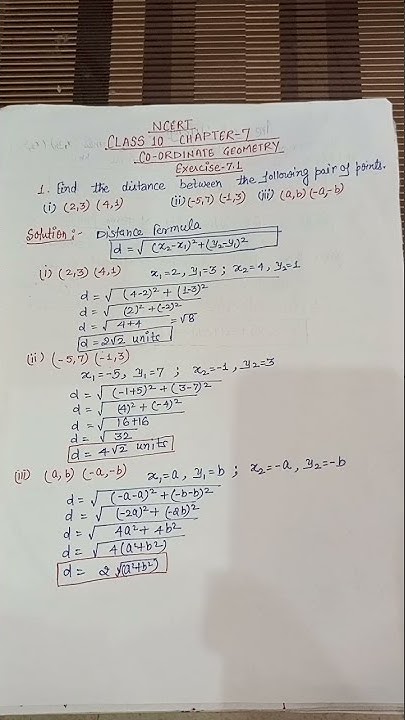 NCERT
CLASS 10 CHAPTER-7
CO-ORDINATE GEOMETRY
Exercise-7.1
1. Find the distance between the following pair of points.
(i) (2,3) (4,1) (ii) (-5,7) (-1,3) (iii) (a,b) (-a,-b)
Solution:- Distance Formula
d = √(x₂-x₁)²+(y₂-y₁)²
(i) (2,3) (4,1) x₁=2, y₁=3 ; x₂=4, y₂=1
d = √(4-2)² + (1-3)²
d = √(2)² + (-2)²
d = √4+4 = √8
d = 2√2 units
(ii) (-5,7) (-1,3)
x₁=-5, y₁=7 ; x₂=-1, y₂=3
d = √(-1+5)² + (3-7)²
d = √(4)² + (-4)²
d = √16+16
d = √32
d = 4√2 units
(iii) (a,b) (-a,-b) x₁=a, y₁=b ; x₂=-a, y₂=-b
d = √(-a-a)² + (-b-b)²
d = √(-2a)² + (-2b)²
d = √4a² + 4b²
d = √4(a²+b²)
d = 2√(a²+b²)